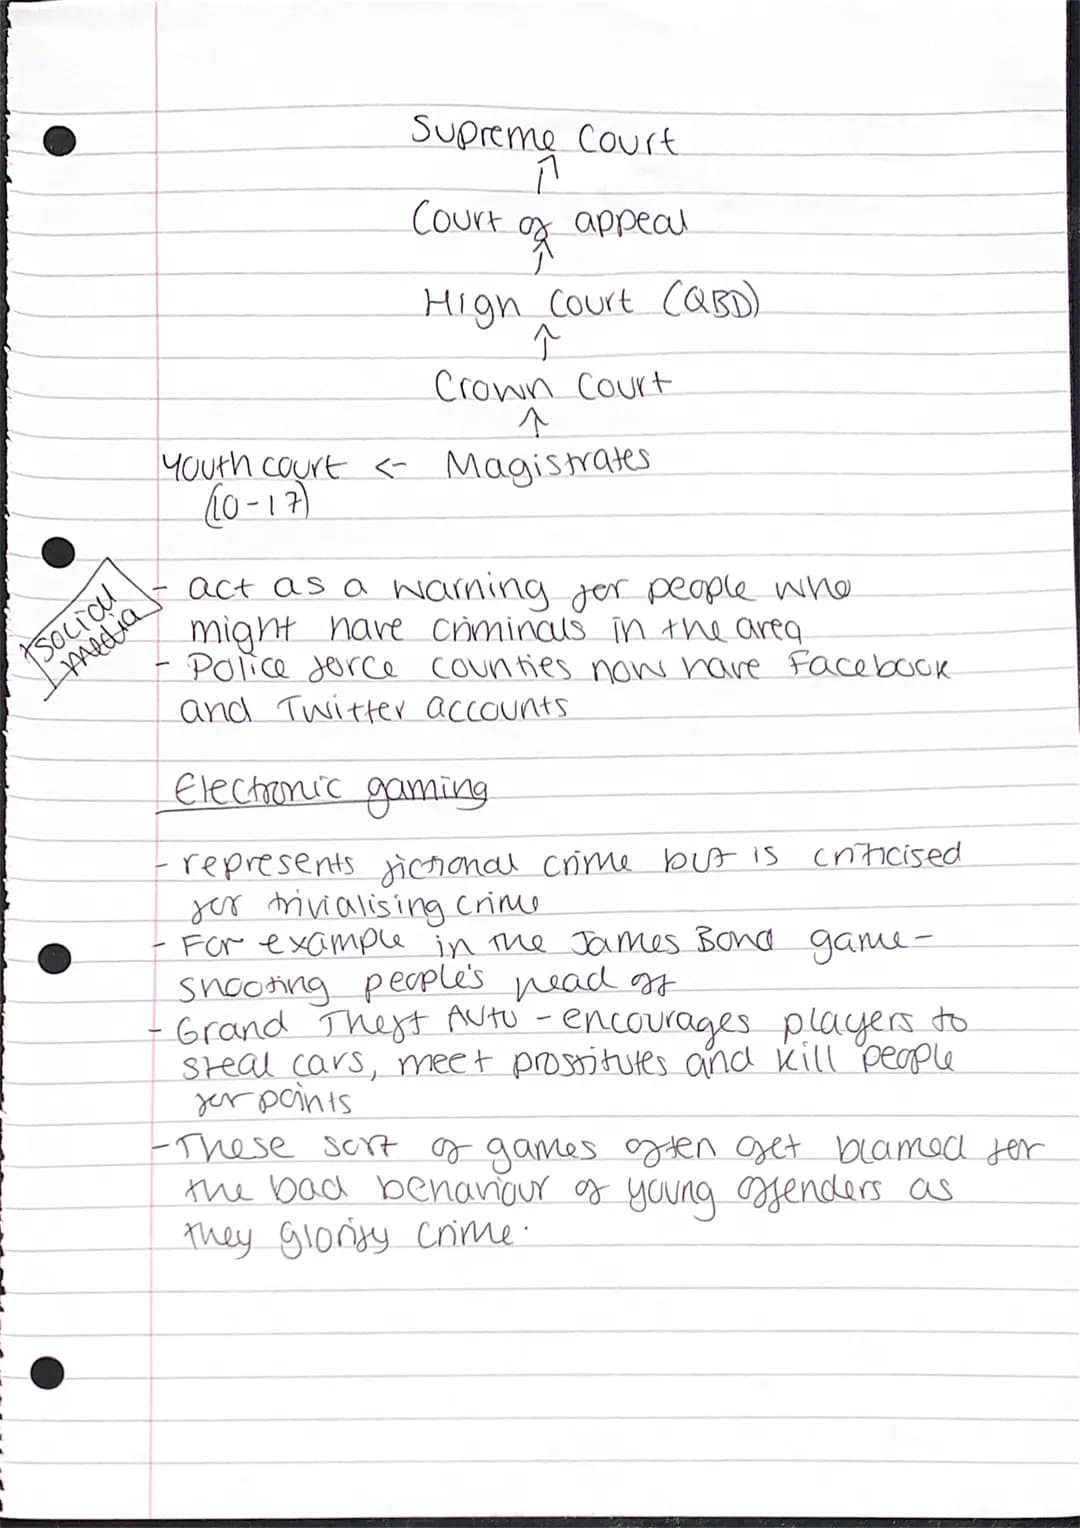 Supreme Court
↑
Court of appeal
↑
High Court (QBD)
↑
Crown Court
↑
Youth court <- Magistrates
(10-17)
social
media
- act as a warning for people who
might have criminals in the area
- Police force counties now have Facebook
and Twitter accounts
Electronic gaming
- represents fictional crime but is criticised
for trivialising crime
- For example in the James Bond game -
shooting people's head off
- Grand Theft Auto - encourages players to
steal cars, meet prostitutes and kill people
for points
- These sort of games often get blamed for
the bad behaviour of young offenders as
they glorify crime.